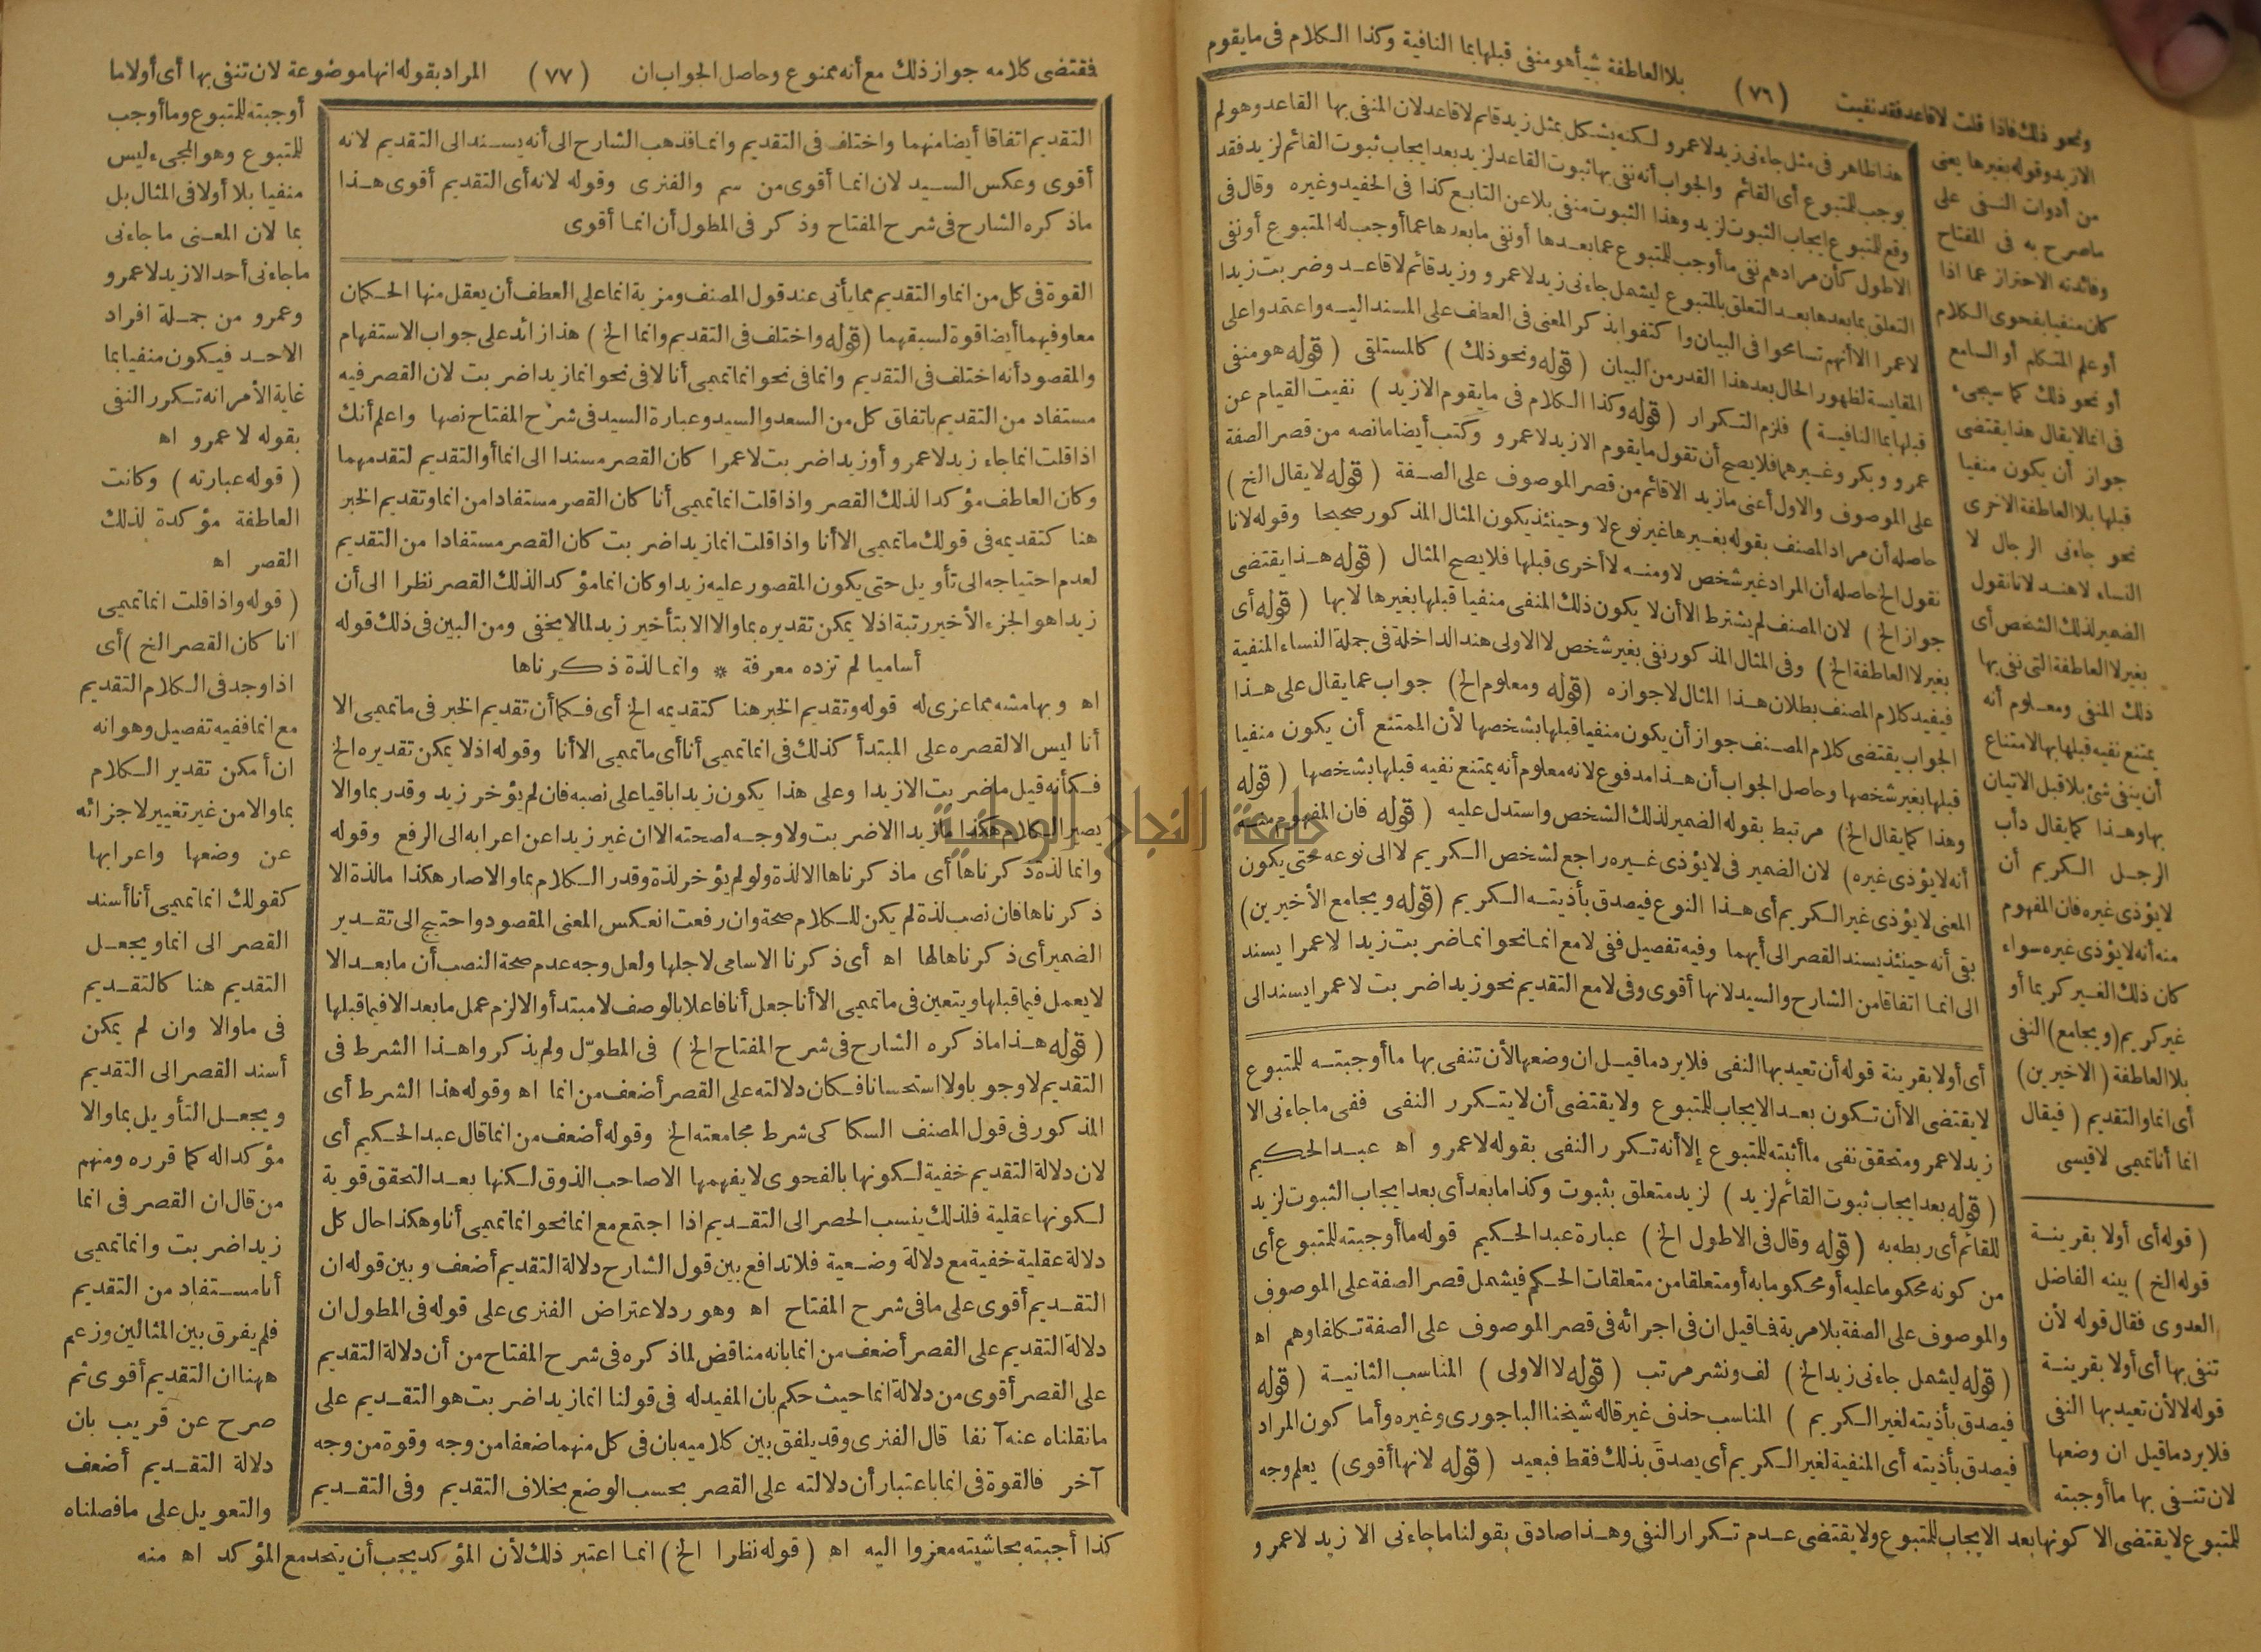 ونحو ذلك فاذا قلت لاقاعد فقد نفيت (٧٦) بلا العاطفة شيأ هو منفى قبلها بما النافية وكذا الكلام فى ما يقوم
الازيد وقوله بغيرها يعنى
من أدوات النفى على
ماصرح به فى المفتاح
وفائدته الاحتراز عما اذا
كان منفيا بفحوى الكلام
أو علم المتكلم أو السامع
أو نحو ذلك كما سيجىء
فى انما لا يقال هذا يقتضى
جواز أن يكون منفيا
قبلها بلا العاطفة الاخرى
نحو جاءنى الرجال لا
النساء لا هند لانا نقول
الضمير لذلك الشخص أى
بغير لا العاطفة التى نفى بها
ذلك المنفى ومعلوم أنه
يمتنع نفيه قبلها بها لامتناع
أن ينفى شئ بلا قبل الاتيان
بها وهذا كما يقال دأب
الرجل الكريم أن
لا يؤذى غيره فان المفهوم
منه أنه لا يؤذى غيره سواء
كان ذلك الغير كريما أو
غير كريم (ويجامع) النفى
بلا العاطفة (الاخيرين)
أى انما والتقديم (فيقال
انما أنا تميمى لا قيسى
هذا ظاهر فى مثل جاءنى زيد لا عمرو لكنه يشكل بمثل زيد قائم لا قاعد لان المنفى بها القاعد وهو لم
يوجب للمتبوع أى القائم والجواب أنه نفى بها ثبوت القاعد لزيد بعد ايجاب ثبوت القائم لزيد فقد
وقع للمتبوع ايجاب الثبوت لزيد وهذا الثبوت منفى بلا عن التابع كذا فى الحفيد وغيره وقال فى
الاطول كأن مرادهم نفى ما أوجب للمتبوع عما بعدها أو نفى ما بعدها عما أوجب له المتبوع أو نفى
التعلق بما بعدها بعد التعلق بالمتبوع ليشمل جاءنى زيد لا عمرو وزيد قائم لا قاعد وضربت زيدا
لا عمرا الا أنهم تسامحوا فى البيان واكتفوا بذكر المعنى فى العطف على المسند اليه واعتمدوا على
المقايسة لظهور الحال بعد هذا القدر من البيان (قوله ونحو ذلك) كالمستلقى (قوله هو منفى
قبلها بما النافية) فلزم التكرار (قوله وكذا الكلام فى ما يقوم الازيد) نفيت القيام عن
عمرو وبكر وغيرهما فلا يصح أن تقول ما يقوم الازيد لا عمرو وكتب أيضا ما نصه من قصر الصفة
على الموصوف والاول أعنى ما زيد الا قائم من قصر الموصوف على الصفة (قوله لا يقال الخ)
حاصله أن مراد المصنف بقوله بغيرها غير نوع لا وحينئذ يكون المثال المذكور صحيحا وقوله لانا
نقول الخ حاصله أن المراد غير شخص لا ومنه لا أخرى قبلها فلا يصح المثال (قوله هذا يقتضى
جواز الخ) لان المصنف لم يشترط الا أن لا يكون ذلك المنفى منفيا قبلها بغيرها لا بها (قوله أى
بغير لا العاطفة الخ) وفى المثال المذكور نفى بغير شخص لا الاولى هند الداخلة فى جملة النساء المنفية
فيفيد كلام المصنف بطلان هذا المثال لا جوازه (قوله ومعلوم الخ) جواب عما يقال على هذا
الجواب يقتضى كلام المصنف جواز أن يكون منفيا قبلها بشخصها لأن الممتنع أن يكون منفيا
قبلها بغير شخصها وحاصل الجواب أن هذا مدفوع لانه معلوم أنه يمتنع نفيه قبلها بشخصها (قوله
وهذا كما يقال الخ) مرتبط بقوله الضمير لذلك الشخص واستدل عليه (قوله فان المفهوم منه
أنه لا يؤذى غيره) لان الضمير فى لا يؤذى غيره راجع لشخص الكريم لا الى نوعه حتى يكون
المعنى لا يؤذى غير الكريم أى هذا النوع فيصدق بأذيته الكريم (قوله ويجامع الأخيرين)
بقى أنه حينئذ يسند القصر الى أيهما وفيه تفصيل ففى لا مع انما نحو انما ضربت زيدا لا عمرا يسند
الى انما اتفاقا من الشارح والسيد لانها أقوى وفى لا مع التقديم نحو زيدا ضربت لا عمرا يسند الى
أى أولا بقرينة قوله أن تعيد بها النفى فلا يرد ما قيل ان وضعها لأن تنفى بها ما أوجبته للمتبوع
لا يقتضى الا أن تكون بعد الايجاب للمتبوع ولا يقتضى أن لا يتكرر النفى ففى ما جاءنى الا
زيد لا عمرو متحقق نفى ما أثبته للمتبوع إلا أنه تكرر النفى بقوله لا عمرو اه عبد الحكيم
(قوله بعد ايجاب ثبوت القائم لزيد) لزيد متعلق بثبوت وكذا ما بعد أى بعد ايجاب الثبوت لزيد
للقائم أى ربطه به (قوله وقال فى الاطول الخ) عبارة عبد الحكيم قوله ما أوجبته للمتبوع أى
من كونه محكوما عليه أو محكوما به أو متعلقا من متعلقات الحكم فيشمل قصر الصفة على الموصوف
والموصوف على الصفة بلا مرية فما قيل ان فى اجرائه فى قصر الموصوف على الصفة تكلفا وهم اه
(قوله ليشمل جاءنى زيد الخ) لف ونشر مرتب (قوله لا الاولى) المناسب الثانية (قوله
فيصدق بأذيته لغير الكريم) المناسب حذف غير قاله شيخنا الباجورى وغيره وأما كون المراد
فيصدق بأذيته أى المنفية لغير الكريم أى يصدق بذلك فقط فبعيد (قوله لانها أقوى) يعلم وجه
(قوله أى أولا بقرينة
قوله الخ) بينه الفاضل
العدوى فقال قوله لأن
تنفى بها أى أولا بقرينة
قوله لا لأن تعيد بها النفى
فلا يرد ما قيل ان وضعها
لان تنفى بها ما أوجبته
للمتبوع لا يقتضى الا كونها بعد الايجاب للمتبوع ولا يقتضى عدم تكرار النفى وهذا صادق بقولنا ما جاءنى الا زيد لا عمرو و
فقتضى كلامه جواز ذلك مع أنه ممنوع وحاصل الجواب ان (٧٧) المراد بقوله انها موضوعة لان تنفى بها أى أولا ما
التقديم اتفاقا أيضا منهما واختلف فى التقديم وانما فذهب الشارح الى أنه يسند الى التقديم لانه
أقوى وعكس السيد لان انما أقوى من سم والفنرى وقوله لانه أى التقديم أقوى هذا
ماذكره الشارح فى شرح المفتاح وذكر فى المطول أن انما أقوى
القوة فى كل من انما والتقديم مما يأتى عند قول المصنف ومزية انما على العطف أن يعقل منها الحكمان
معا وفيهما أيضا قوة لسبقهما (قوله واختلف فى التقديم وانما الخ) هذا زائد على جواب الاستفهام
والمقصود أنه اختلف فى التقديم وانما فى نحو انما تميمى أنا لا فى نحو انما زيدا ضربت لان القصر فيه
مستفاد من التقديم باتفاق كل من السعد والسيد وعبارة السيد فى شرح المفتاح نصها واعلم أنك
اذا قلت انما جاء زيد لا عمرو أو زيدا ضربت لا عمرا كان القصر مسندا الى انما أو التقديم لتقدمهما
وكان العاطف مؤكدا لذلك القصر واذا قلت انما تميمى أنا كان القصر مستفادا من انما وتقديم الخبر
هنا كتقديمه فى قولك ما تميمى الا أنا واذا قلت انما زيدا ضربت كان القصر مستفادا من التقديم
لعدم احتياجه الى تأويل حتى يكون المقصور عليه زيدا وكان انما مؤكدا لذلك القصر نظرا الى أن
زيدا هو الجزء الأخير رتبة اذ لا يمكن تقديره بما والا الا بتأخير زيد لما لا يخفى ومن البين فى ذلك قوله
أساميا لم تزده معرفة * وانما لذة ذكرناها
اه وبهامشه مما عزى له قوله وتقديم الخبر هنا كتقديمه الخ أى فكما أن تقديم الخبر فى ما تميمى الا
أنا ليس الا لقصره على المبتدأ كذلك فى انما تميمى أنا أى ما تميمى الا أنا وقوله اذ لا يمكن تقديره الخ
فكأنه قيل ما ضربت الا زيدا وعلى هذا يكون زيدا باقيا على نصبه فان لم يؤخر زيد وقدر بما والا
يصير الكلام هكذا ما زيدا الا ضربت ولا وجه لصحته الا ان غير زيدا عن اعرابه الى الرفع وقوله
وانما لذة ذكرناها أى ما ذكرناها الا لذة ولو لم يؤخر لذة وقدر الكلام بما والا صار هكذا ما لذة الا
ذكرناها فان نصب لذة لم يكن للكلام صحة وان رفعت انعكس المعنى المقصود واحتيج الى تقدير
الضمير أى ذكرناها لها اه أى ذكرنا الاسامى لاجلها ولعل وجه عدم صحة النصب أن ما بعد الا
لا يعمل فيما قبلها ويتعين فى ما تميمى الا أنا جعل أنا فاعلا بالوصف لا مبتدأ والا لزم عمل ما بعد الا فيما قبلها
(قوله هذا ماذكره الشارح فى شرح المفتاح الخ) فى المطوّل ولم يذكروا هذا الشرط فى
التقديم لا وجوبا ولا استحسانا فكان دلالته على القصر أضعف من انما اه وقوله هذا الشرط أى
المذكور فى قول المصنف السكاكى شرط مجامعته الخ وقوله أضعف من انما قال عبد الحكيم أى
لان دلالة التقديم خفية لكونها بالفحوى لا يفهمها الا صاحب الذوق لكنها بعد التحقق قوية
لكونها عقلية فلذلك ينسب الحصر الى التقديم اذا اجتمع مع انما نحو انما تميمى أنا وهكذا حال كل
دلالة عقلية خفية مع دلالة وضعية فلا تدافع بين قول الشارح دلالة التقديم أضعف وبين قوله ان
التقديم أقوى على ما فى شرح المفتاح اه وهو رد لاعتراض الفنرى على قوله فى المطول ان
دلالة التقديم على القصر أضعف من انما بانه مناقض لما ذكره فى شرح المفتاح من أن دلالة التقديم
على القصر أقوى من دلالة انما حيث حكم بان المفيد له فى قولنا انما زيدا ضربت هو التقديم على
ما نقلناه عنه آنفا قال الفنرى وقد يلفق بين كلاميه بان فى كل منهما ضعفا من وجه وقوة من وجه
آخر فالقوة فى انما باعتبار أن دلالته على القصر بحسب الوضع بخلاف التقديم وفى التقديم
أوجبته للمتبوع وما أوجب
للمتبوع وهو المجىء ليس
منفيا بلا أولا فى المثال بل
بما لان المعنى ما جاءنى
ما جاءنى أحد الا زيد لا عمرو
وعمرو من جملة افراد
الاحد فيكون منفيا بما
غاية الأمر انه تكرر النفى
بقوله لا عمرو اه
(قوله عبارته) وكانت
العاطفة مؤكدة لذلك
القصر اه
(قوله واذا قلت انما تميمى
انا كان القصر الخ) أى
اذا وجد فى الكلام التقديم
مع انما ففيه تفصيل وهو انه
ان أمكن تقدير الكلام
بما والا من غير تغيير لاجزائه
عن وضعها واعرابها
كقولك انما تميمى أنا أسند
القصر الى انما ويجعل
التقديم هنا كالتقديم
فى ما والا وان لم يمكن
أسند القصر الى التقديم
ويجعل التأويل بما والا
مؤكدا له كما قرره ومنهم
من قال ان القصر فى انما
زيدا ضربت وانما تميمى
أنا مستفاد من التقديم
فلم يفرق بين المثالين وزعم
ههنا ان التقديم أقوى ثم
صرح عن قريب بان
دلالة التقديم أضعف
والتعويل على ما فصلناه
كذا أجبته بحاشيته معزوا اليه اه (قوله نظرا الخ) انما اعتبر ذلك لأن المؤكد يجب أن يتحد مع المؤكد اه منه
جامعة النجاح الوطنية